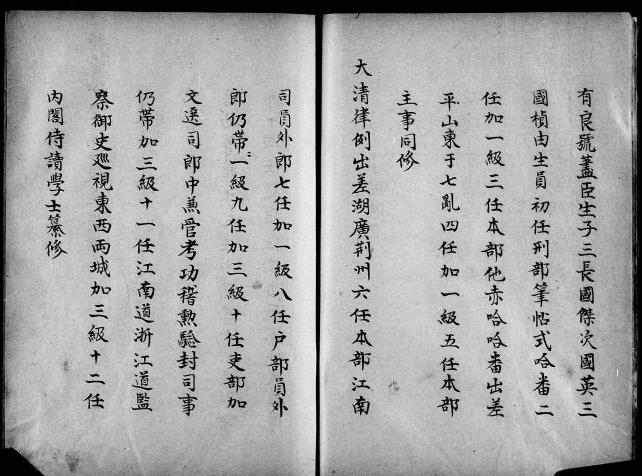 有良號藎臣生子三長國傑次國英三
國楨由生員初任刑部筆帖式哈番二
任加一級三任本部他赤哈哈番出差
平山東于七亂四任加一級五任本部
主事同修
大清律例出差湖廣荆州六任本部江南
司員外郎七任加一級八任戶部員外
郎仍帶一級九任加三級十任吏部加
文選司郎中兼管考功稽勲驗封司事
仍帶加三級十一任江南道浙江道監
察御史廵視東西兩城加三級十二任
內閣侍讀學士纂修